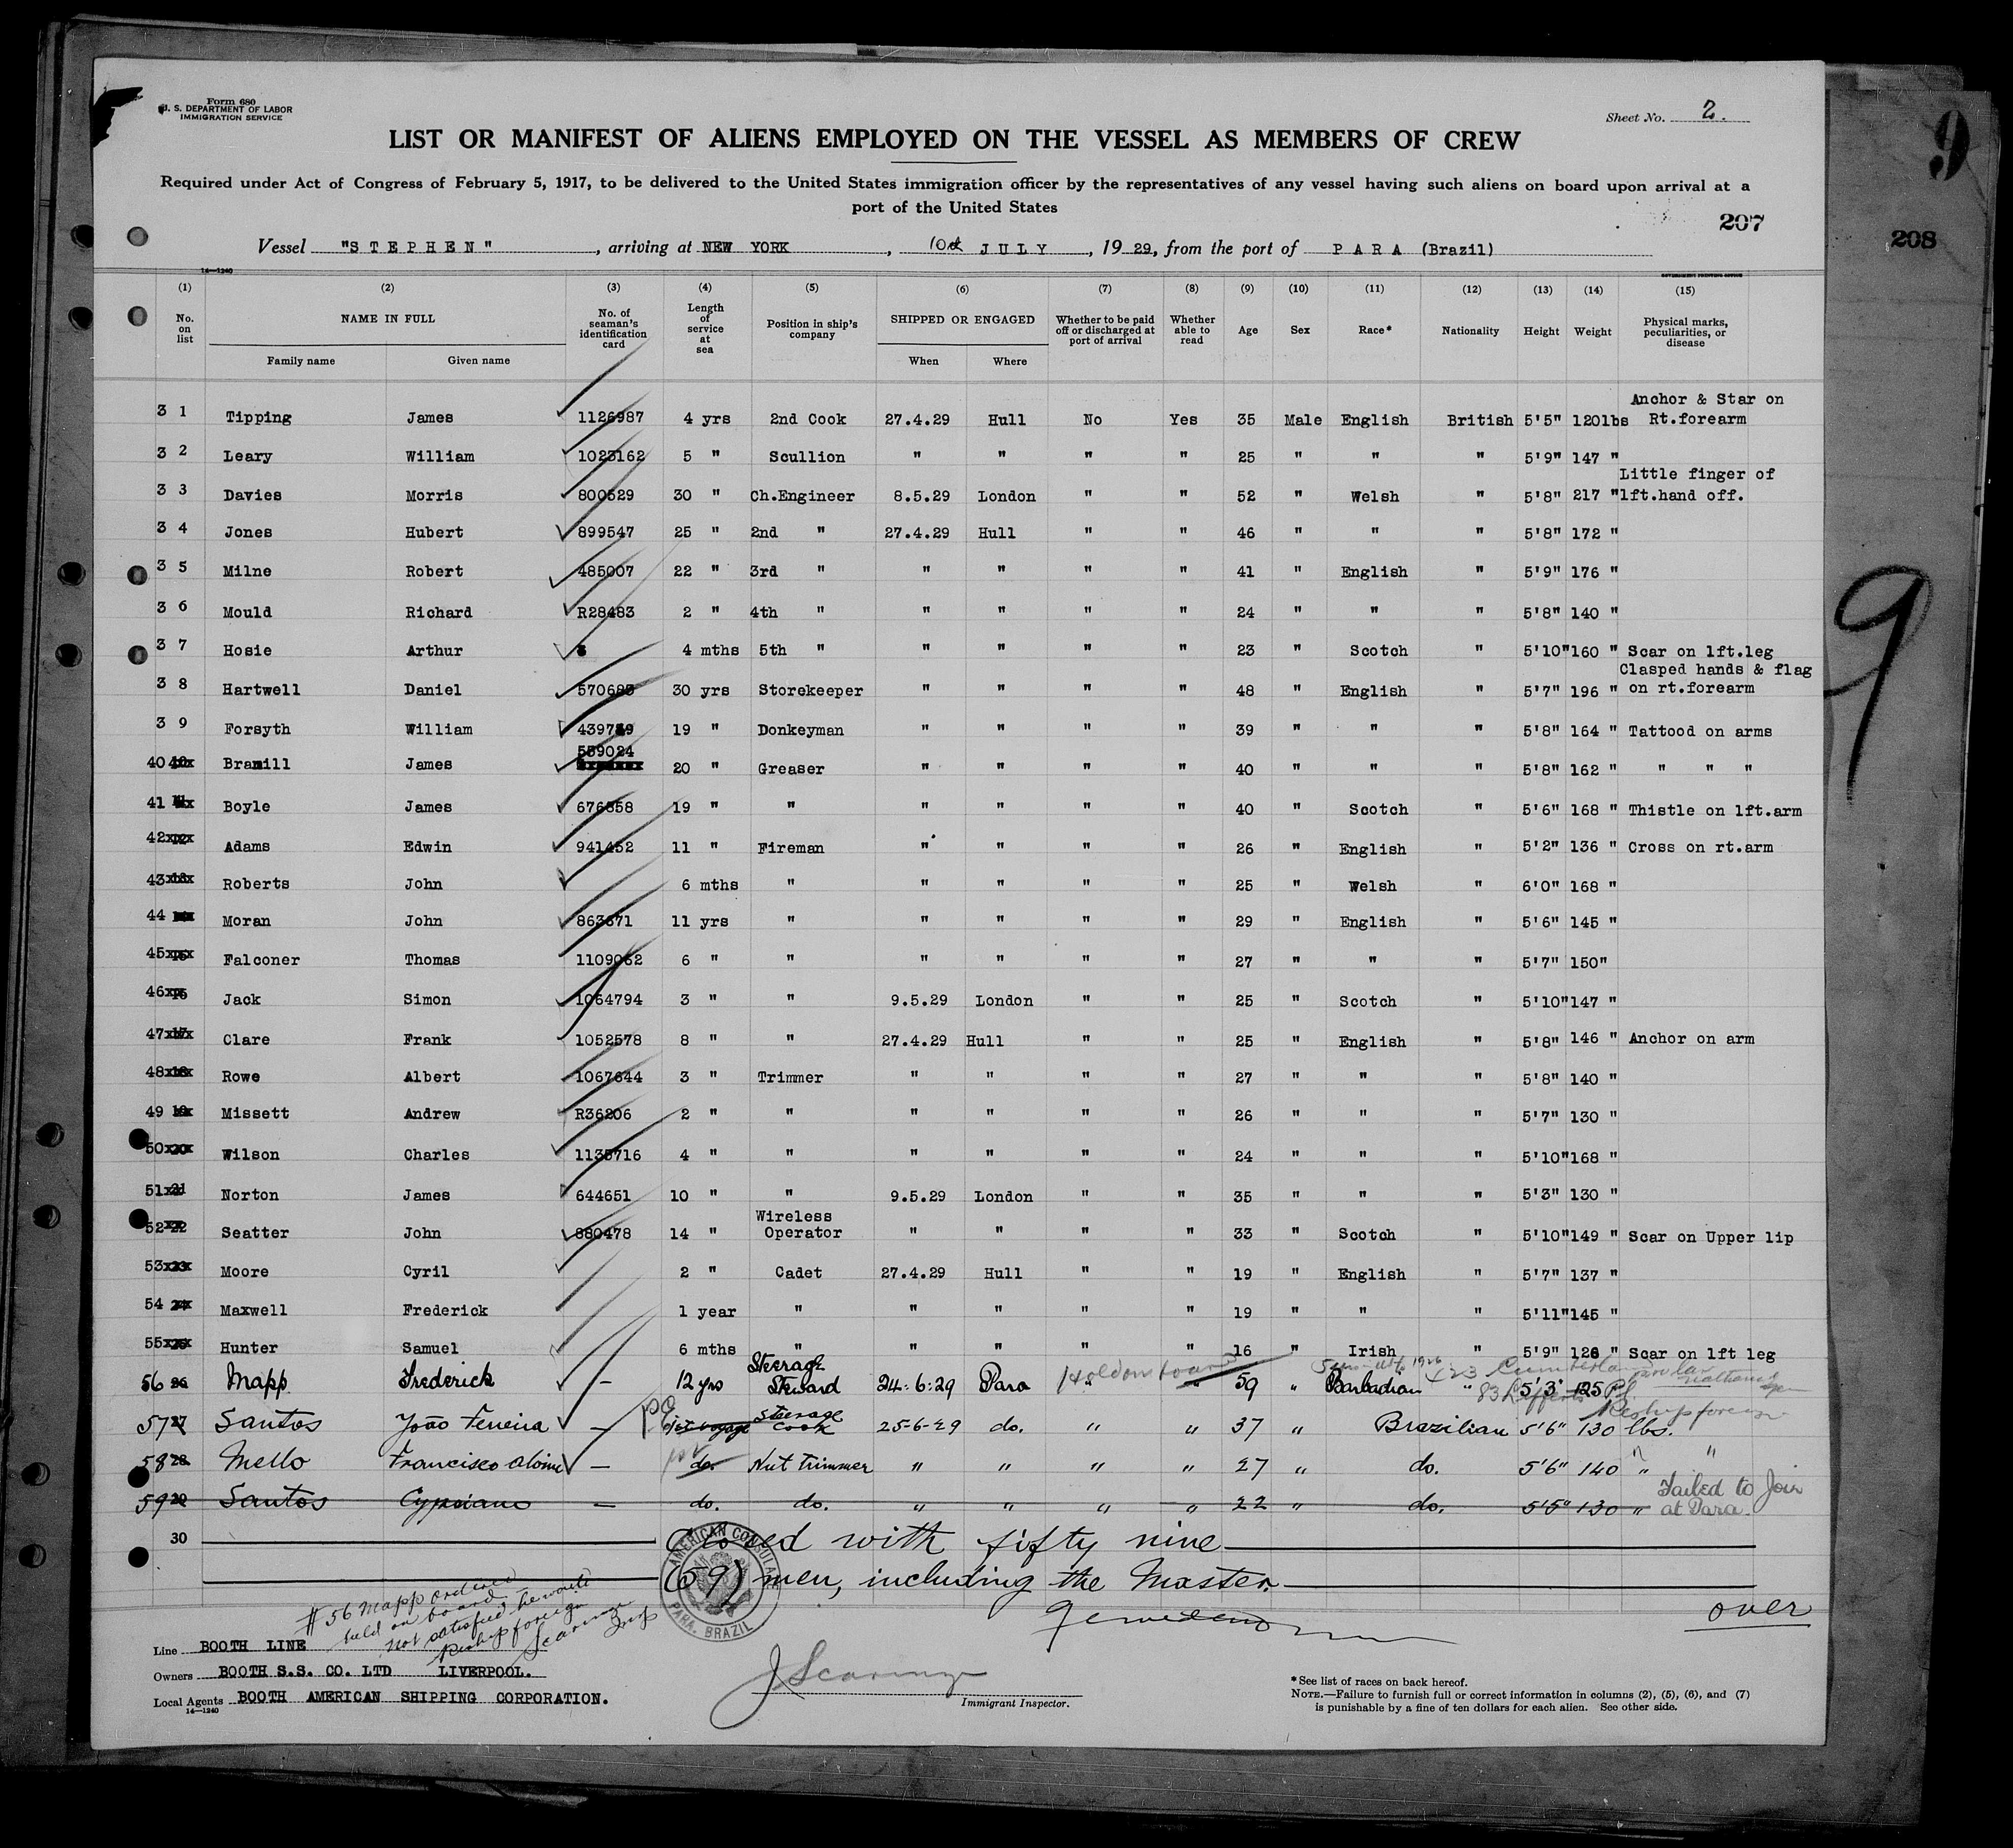 Form 680
U. S. DEPARTMENT OF LABOR
IMMIGRATION SERVICE
Sheet No. 2.
9
LIST OR MANIFEST OF ALIENS EMPLOYED ON THE VESSEL AS MEMBERS OF CREW
Required under Act of Congress of February 5, 1917, to be delivered to the United States immigration officer by the representatives of any vessel having such aliens on board upon arrival at a
port of the United States
207
208
Vessel "STEPHEN", arriving at NEW YORK, 10th JULY, 1929, from the port of PARA (Brazil)
14—1240 GOVERNMENT PRINTING OFFICE
(1) (2) (3) (4) (5) (6) (7) (8) (9) (10) (11) (12) (13) (14) (15)
No. on list NAME IN FULL No. of seaman's identification card Length of service at sea Position in ship's company SHIPPED OR ENGAGED Whether to be paid off or discharged at port of arrival Whether able to read Age Sex Race* Nationality Height Weight Physical marks, peculiarities, or disease
Family name Given name When Where
3 1 Tipping James 1126987 4 yrs 2nd Cook 27.4.29 Hull No Yes 35 Male English British 5'5" 120lbs Anchor & Star on Rt.forearm
3 2 Leary William 1023162 5 " Scullion " " " " 25 " " " 5'9" 147 "
3 3 Davies Morris 800529 30 " Ch.Engineer 8.5.29 London " " 52 " Welsh " 5'8" 217 " Little finger of lft.hand off.
3 4 Jones Hubert 899547 25 " 2nd " 27.4.29 Hull " " 46 " " " 5'8" 172 "
3 5 Milne Robert 485007 22 " 3rd " " " " " 41 " English " 5'9" 176 "
3 6 Mould Richard R28483 2 " 4th " " " " " 24 " " " 5'8" 140 "
3 7 Hosie Arthur 4 mths 5th " " " " " 23 " Scotch " 5'10" 160 " Scar on lft.leg
3 8 Hartwell Daniel 570683 30 yrs Storekeeper " " " " 48 " English " 5'7" 196 " Clasped hands & flag on rt.forearm
3 9 Forsyth William 19 " Donkeyman " " " " 39 " " " 5'8" 164 " Tattood on arms
40 Bramill James 559024 20 " Greaser " " " " 40 " " " 5'8" 162 " " " "
41 Boyle James 676858 19 " " " " " " 40 " Scotch " 5'6" 168 " Thistle on lft.arm
42 Adams Edwin 941452 11 " Fireman " " " " 26 " English " 5'2" 136 " Cross on rt.arm
43 Roberts John 6 mths " " " " " 25 " Welsh " 6'0" 168 "
44 Moran John 863671 11 yrs " " " " " 29 " English " 5'6" 145 "
45 Falconer Thomas 1109062 6 " " " " " " 27 " " " 5'7" 150"
46 Jack Simon 1064794 3 " " 9.5.29 London " " 25 " Scotch " 5'10" 147 "
47 Clare Frank 1052578 8 " " 27.4.29 Hull " " 25 " English " 5'8" 146 " Anchor on arm
48 Rowe Albert 1067644 3 " Trimmer " " " " 27 " " " 5'8" 140 "
49 Missett Andrew R36206 2 " " " " " " 26 " " " 5'7" 130 "
50 Wilson Charles 1135716 4 " " " " " " 24 " " " 5'10" 168 "
51 Norton James 644651 10 " " 9.5.29 London " " 35 " " " 5'3" 130 "
52 Seatter John 880478 14 " Wireless Operator " " " " 33 " Scotch " 5'10" 149 " Scar on Upper lip
53 Moore Cyril 2 " Cadet 27.4.29 Hull " " 19 " English " 5'7" 137 "
54 Maxwell Frederick 1 year " " " " " 19 " " " 5'11" 145 "
55 Hunter Samuel 6 mths " " " " " 16 " Irish " 5'9" 126 " Scar on lft leg
56 26 Mapp Frederick — 12 yrs Steerage Steward 24:6:29 Para Hold on board " 59 " Barbadian " 5'3" 125 Reship foreign
57 27 Santos João Ferreira — 1st voyage Steerage Cook 25-6-29 do. " " 37 " Brazilian 5'6" 130 lbs. "
58 28 Mello Francisco — do. Nut Trimmer " " " " 27 " do. 5'6" 140 "
59 29 Santos Cypriano — do. do. " " " " 22 " do. 5'5" 130 " Failed to Join at Para.
30 Closed with fifty nine
(59) men, including the Master.
AMERICAN CONSULATE
PARA, BRAZIL
over
#56 Mapp ordered
held on board
not satisfied he would
Reship foreign
Scaringe
Insp
Line BOOTH LINE
Owners BOOTH S.S. CO. LTD LIVERPOOL.
Local Agents BOOTH AMERICAN SHIPPING CORPORATION.
14—1240
J Scaringe
Immigrant Inspector.
*See list of races on back hereof.
NOTE.—Failure to furnish full or correct information in columns (2), (5), (6), and (7)
is punishable by a fine of ten dollars for each alien. See other side.
9